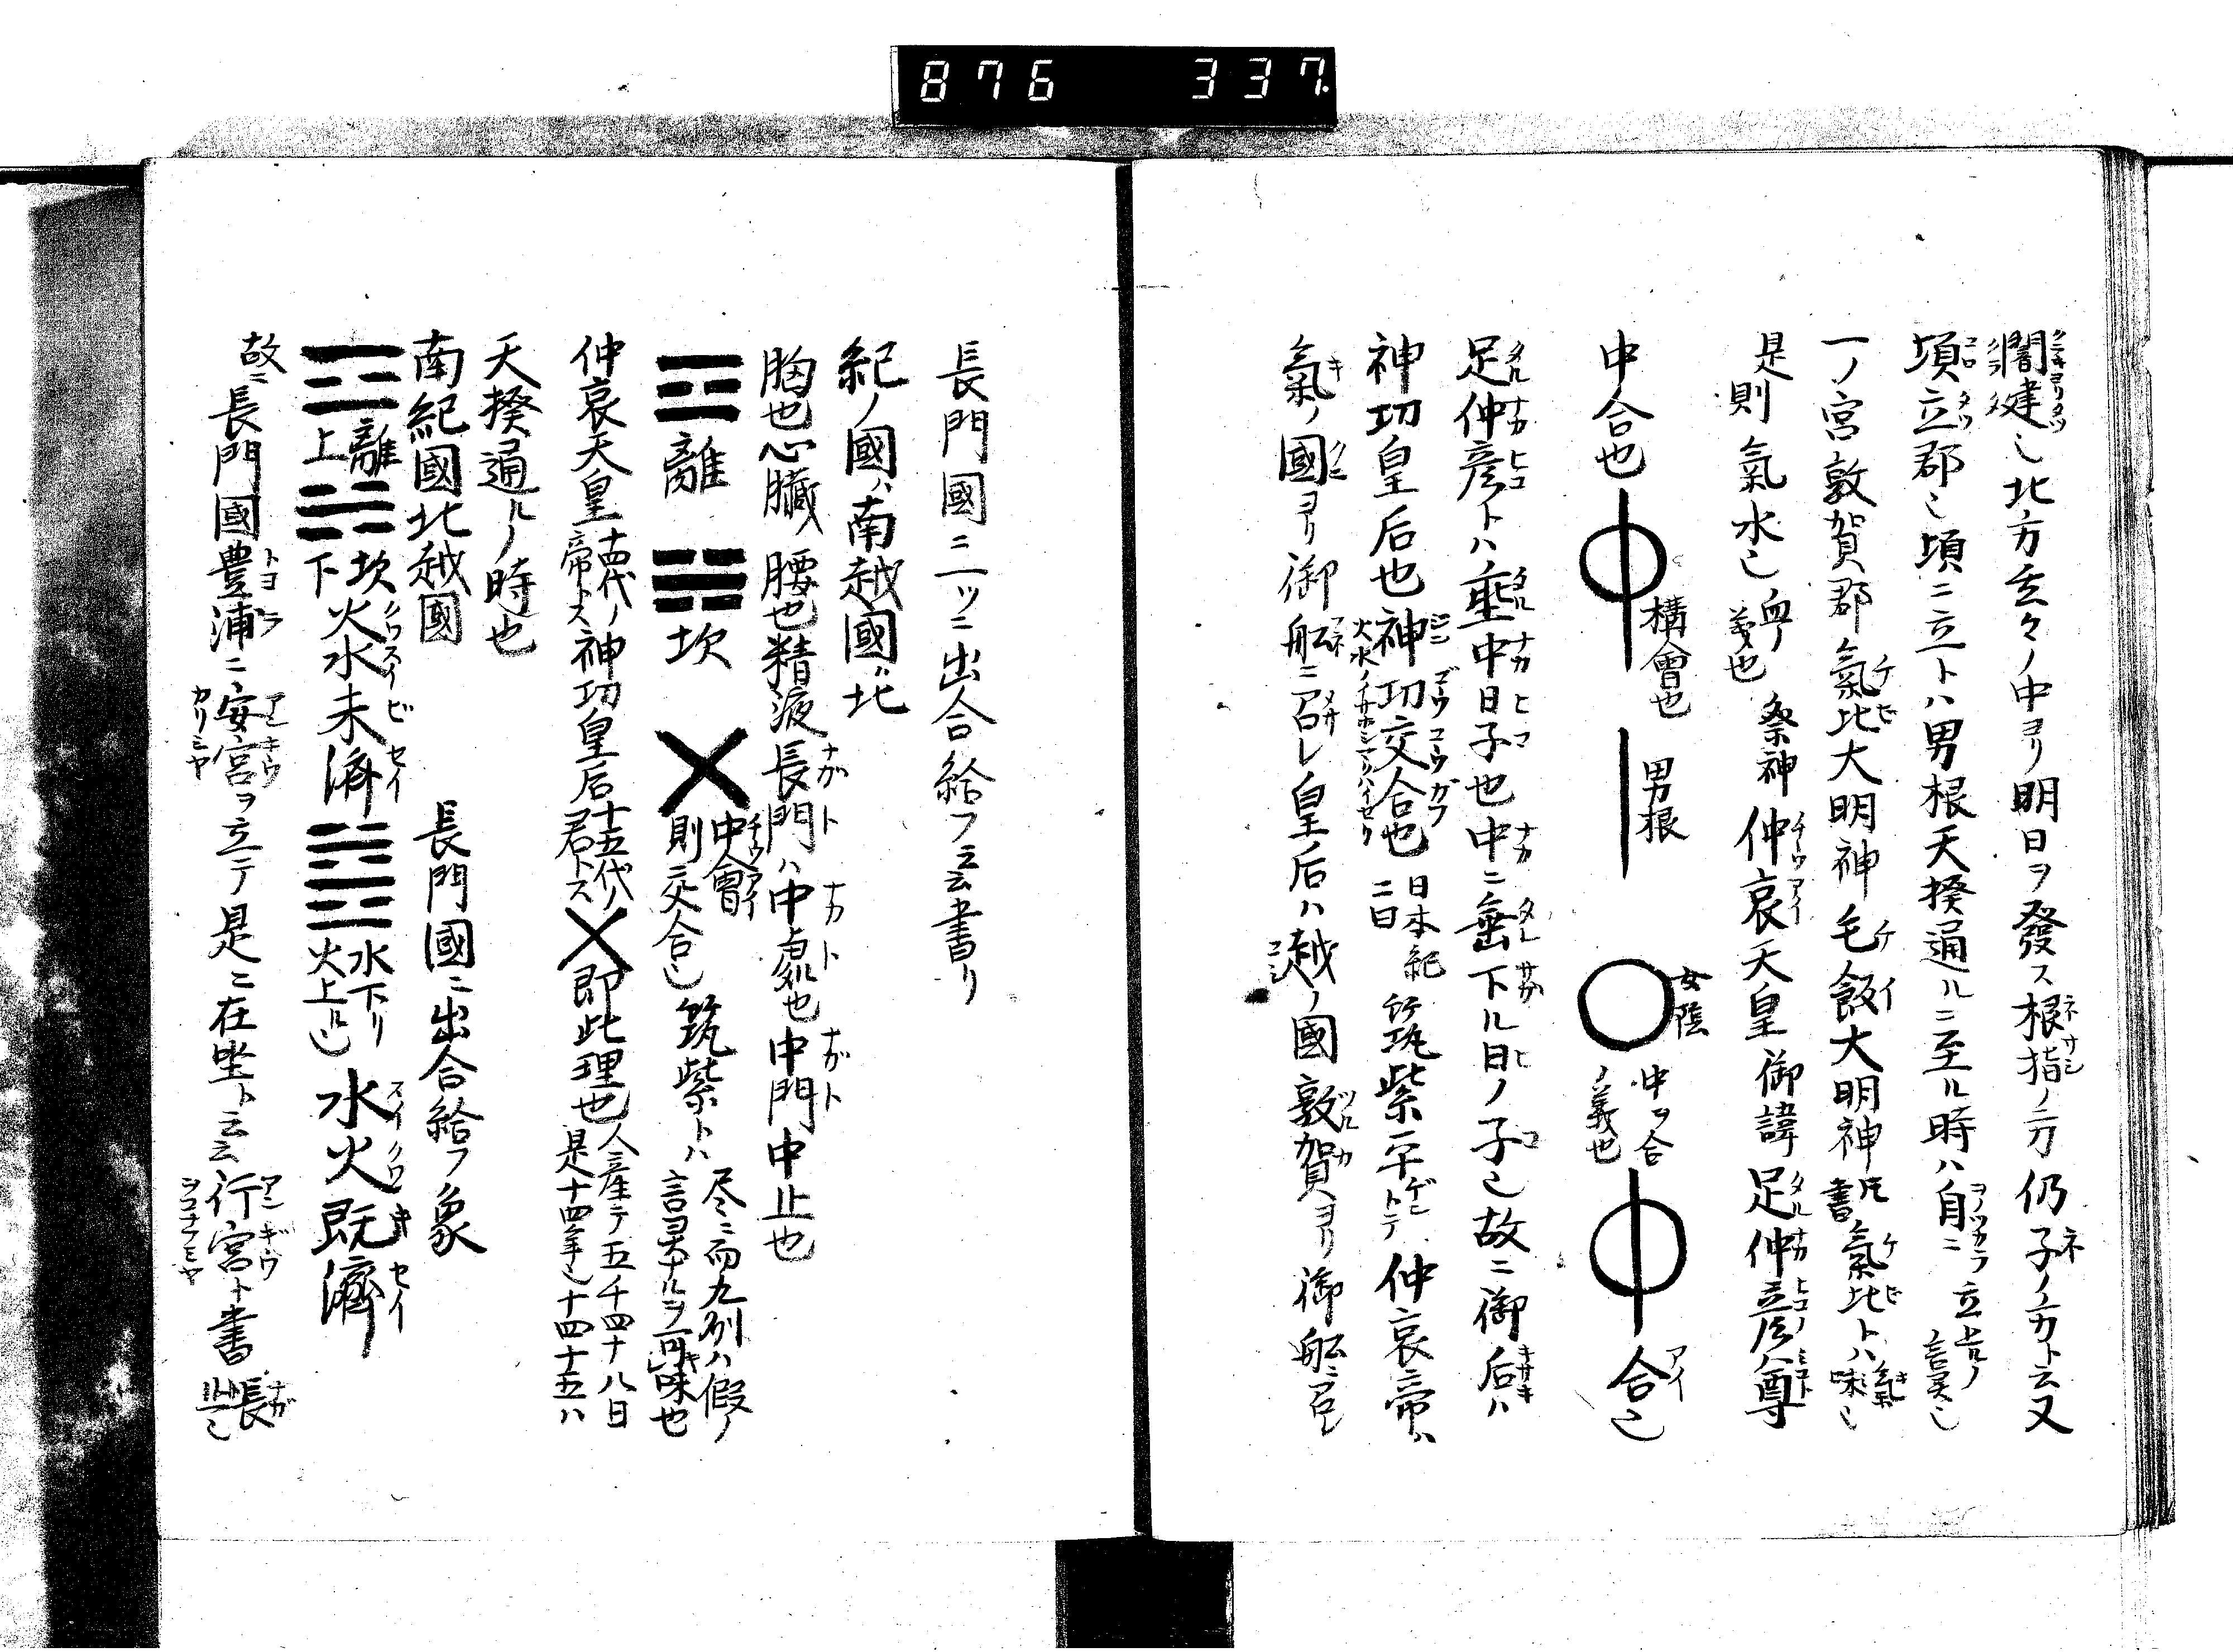 876 337
闇建也北方玄々ノ中ヨリ明日ヲ發ス根指ノ方仍子ノ方ト云又
項立郡也項ニ立トハ男根天揆通ルニ至ル時ハ自ニ立
一ノ宮敦賀郡氣比大明神毛飯大明神氣比トハ氣味也
是則氣水也血ノ義也祭神仲哀天皇御諱足仲彦尊
中合也 構會也 男根 女陰 中ヲ合ノ義也 合也
足仲彦トハ垂中日子也中ニ垂下ル日ノ子也故ニ御后ハ
神功皇后也神功交合也日本紀ニ曰筑紫平トテ仲哀帝ハ
氣ノ國ヨリ御舩ニ召レ皇后ハ越ノ國敦賀ヨリ御舩ニ召レ
長門國ニ二ツニ出合給フ云云書リ
紀ノ國ハ南越國ハ北
胸也心臓腰也精液長門ハ中處也中門中止也
離 坎 中會則交合也筑紫トハ尽ニ而九州ハ假ノ言灵ナルヲ可味也
仲哀天皇十四代ノ帝トス神功皇后十五代ノ君トス即此理也人産テ五千四十八日是十四年也十四十五ハ
天揆通ルノ時也
南紀國北越國 長門國ニ出合給フ象
離上坎下火水未濟 水下リ火上ル也水火既濟
故ニ長門國豊浦ニ安宮ヲ立テ是ニ在坐ト云云行宮ト書長